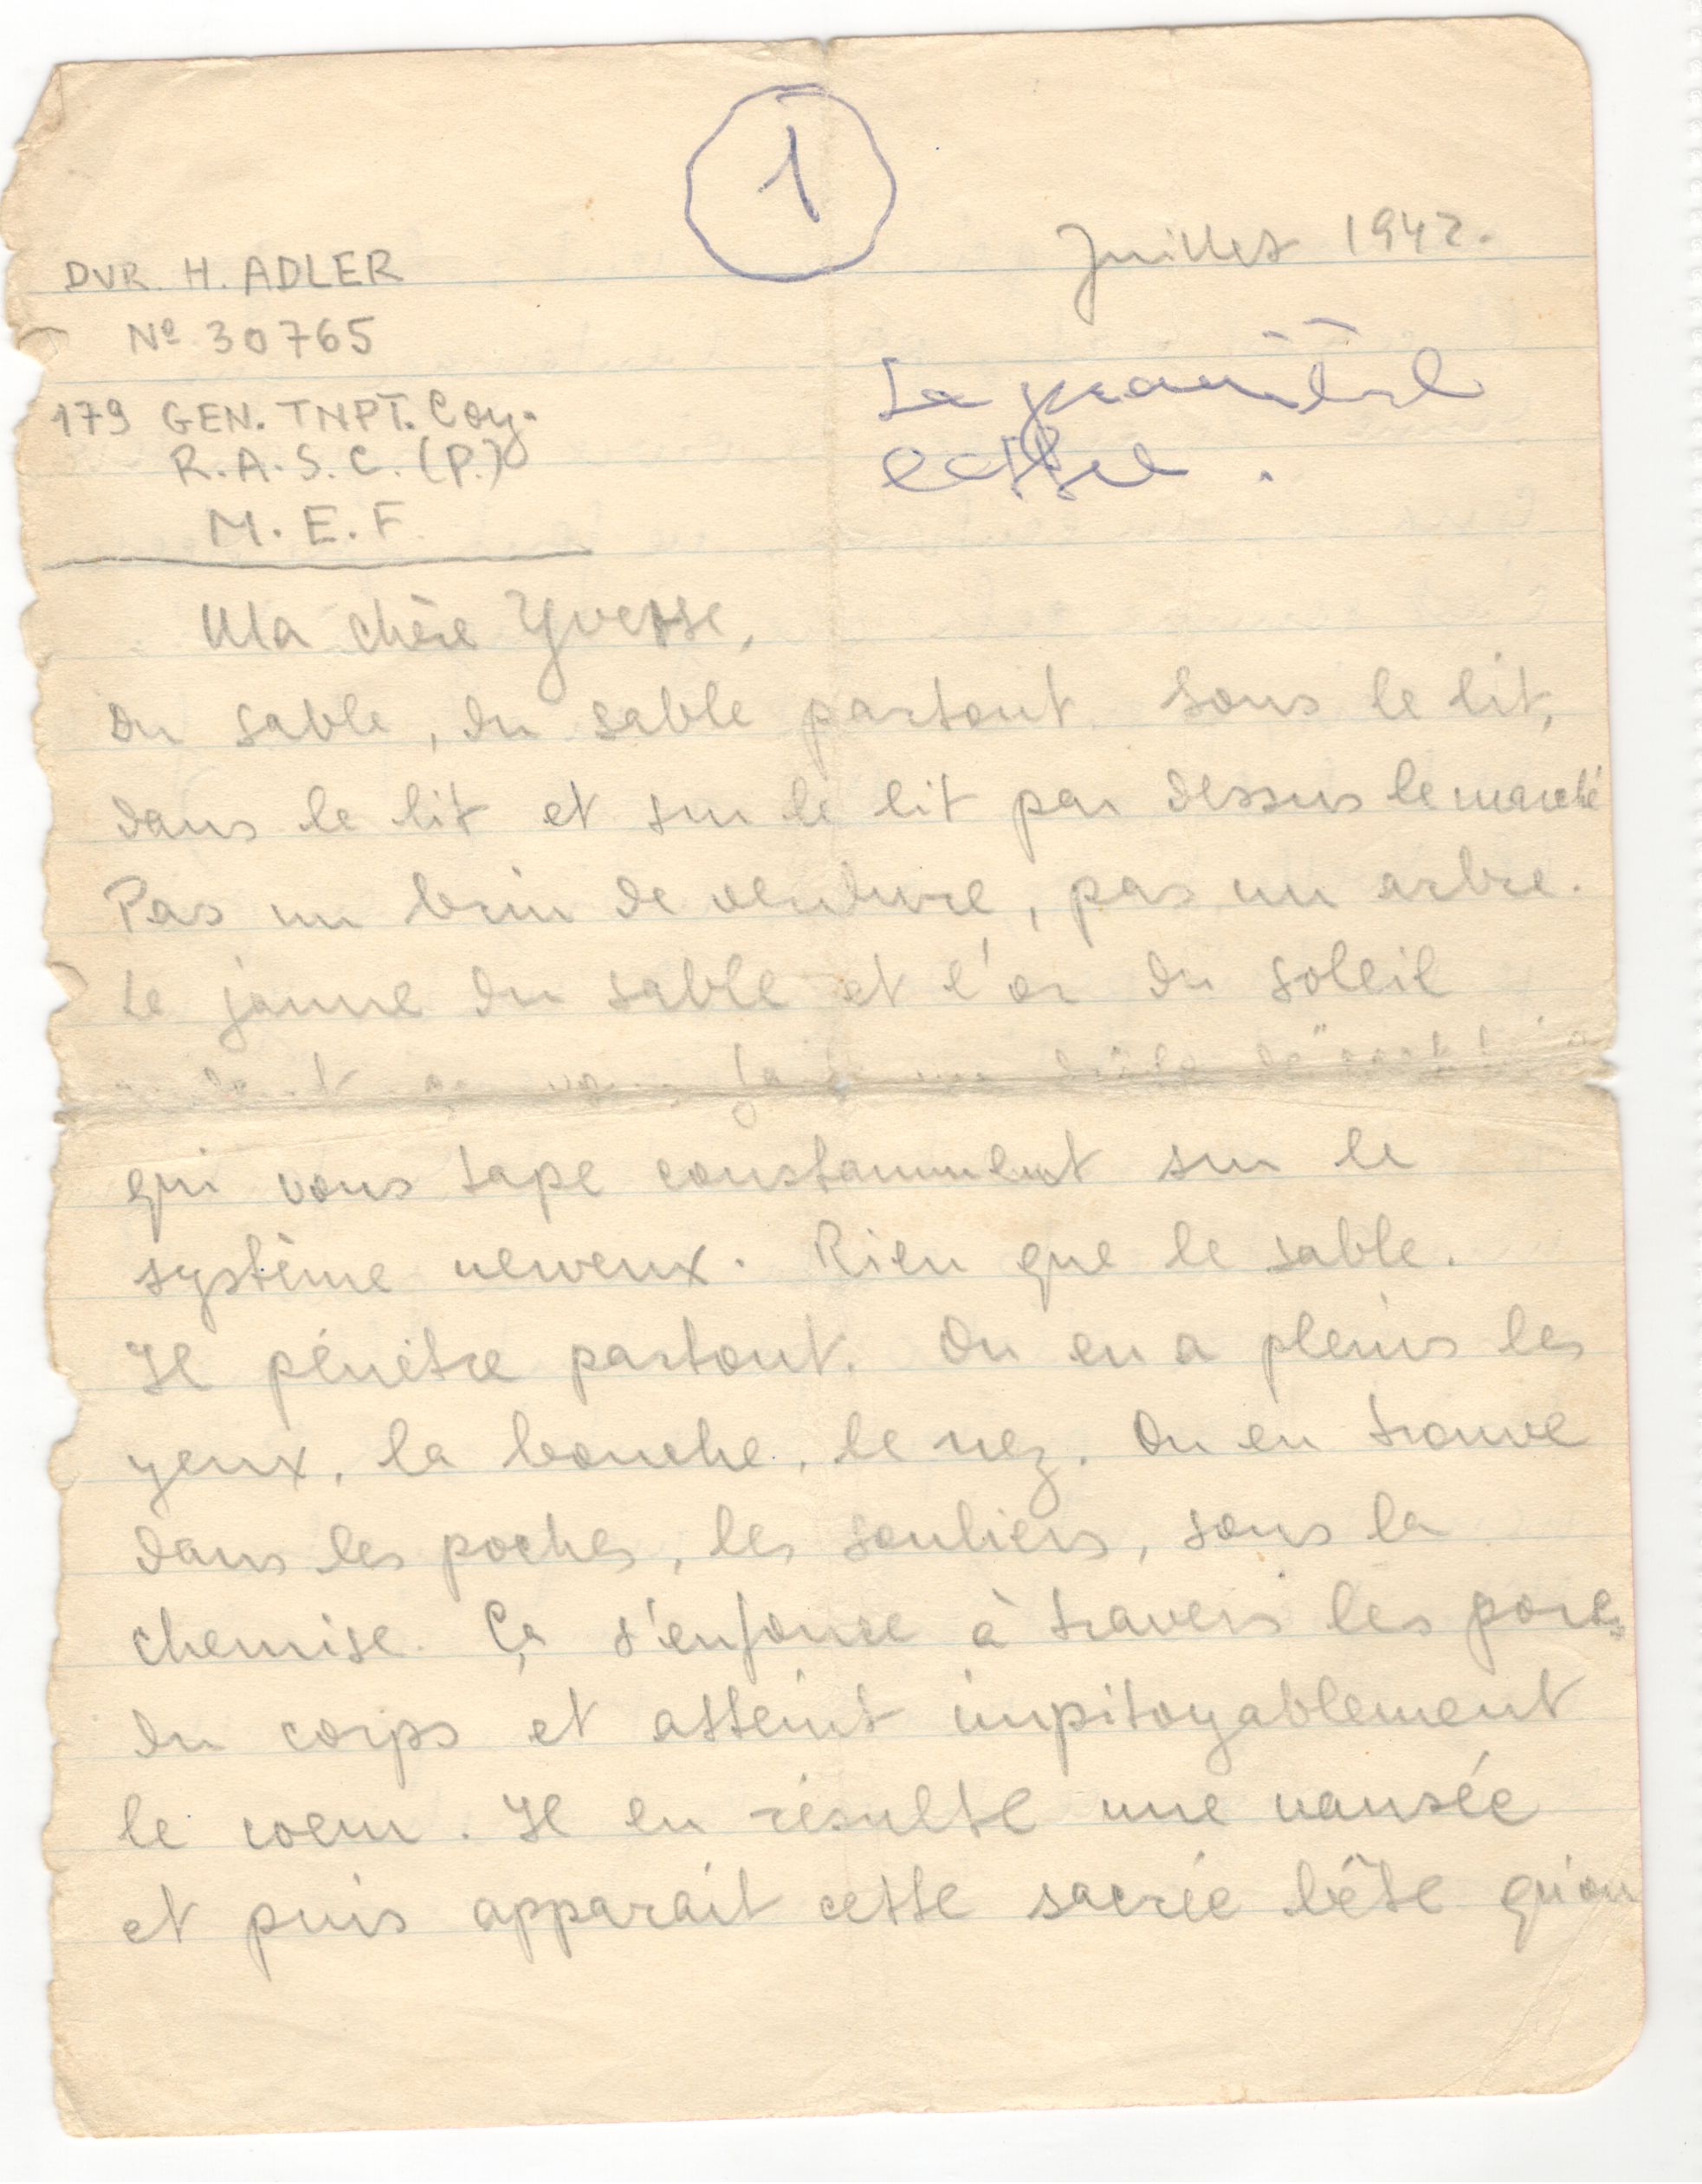 1
Juillet 1942.
DVR. H. ADLER
Nº 30765
179 GEN. TNPT. Coy.
R.A.S.C. (P.)
M.E.F.
La première
lettre.
Ma chère Yvette,
Du sable, du sable partout. Sous le lit,
dans le lit et sur le lit par dessus le marché
Pas un brin de verdure, pas un arbre.
Le jaune du sable et l'or du soleil
qui vous tape constamment sur le
système nerveux. Rien que le sable.
Il pénètre partout. On en a pleins les
yeux, la bouche, le nez. On en trouve
dans les poches, les souliers, sous la
chemise. Ça s'enfonce à travers les pores
du corps et atteint impitoyablement
le coeur. Il en résulte une nausée
et puis apparait cette sacrée bête qu'on